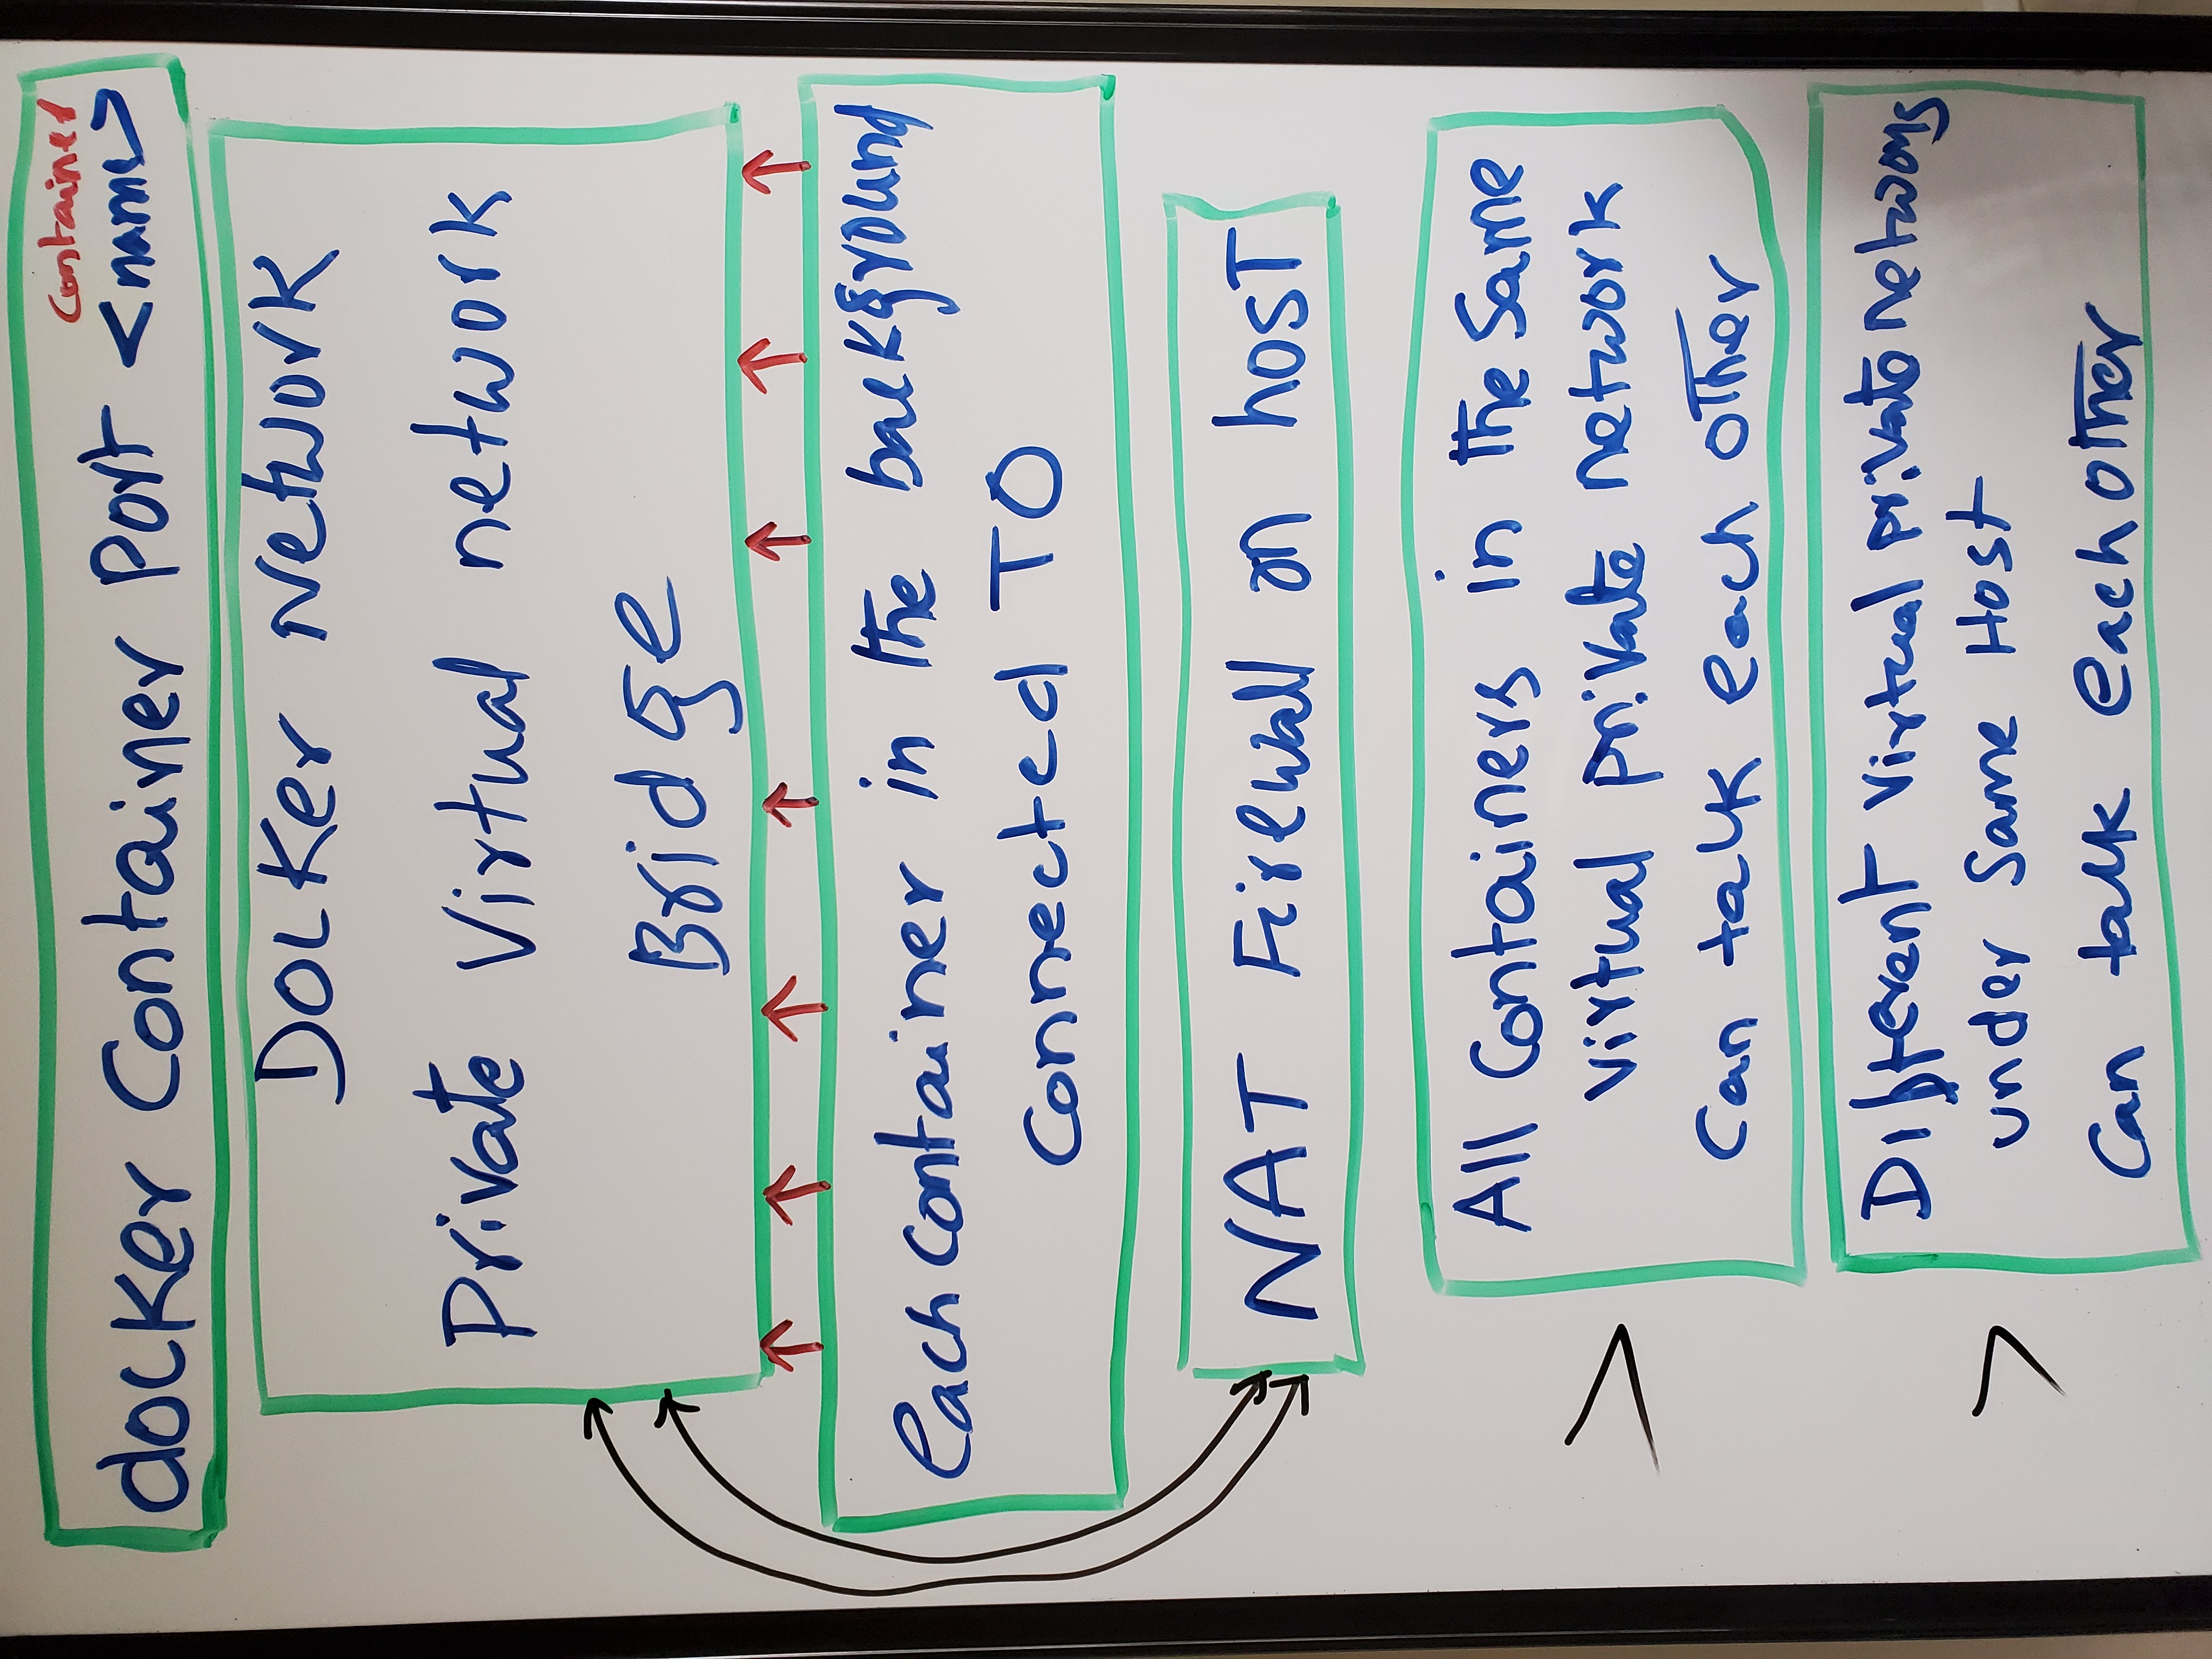 container
docker Container Port <name>
Docker Network
Private Virtual network
Bridge
each container in the background
connected TO
NAT Firewall on host
All Containers in the Same
virtual private network
Can talk each other
Different virtual private networs
under Same Host
Can talk each other